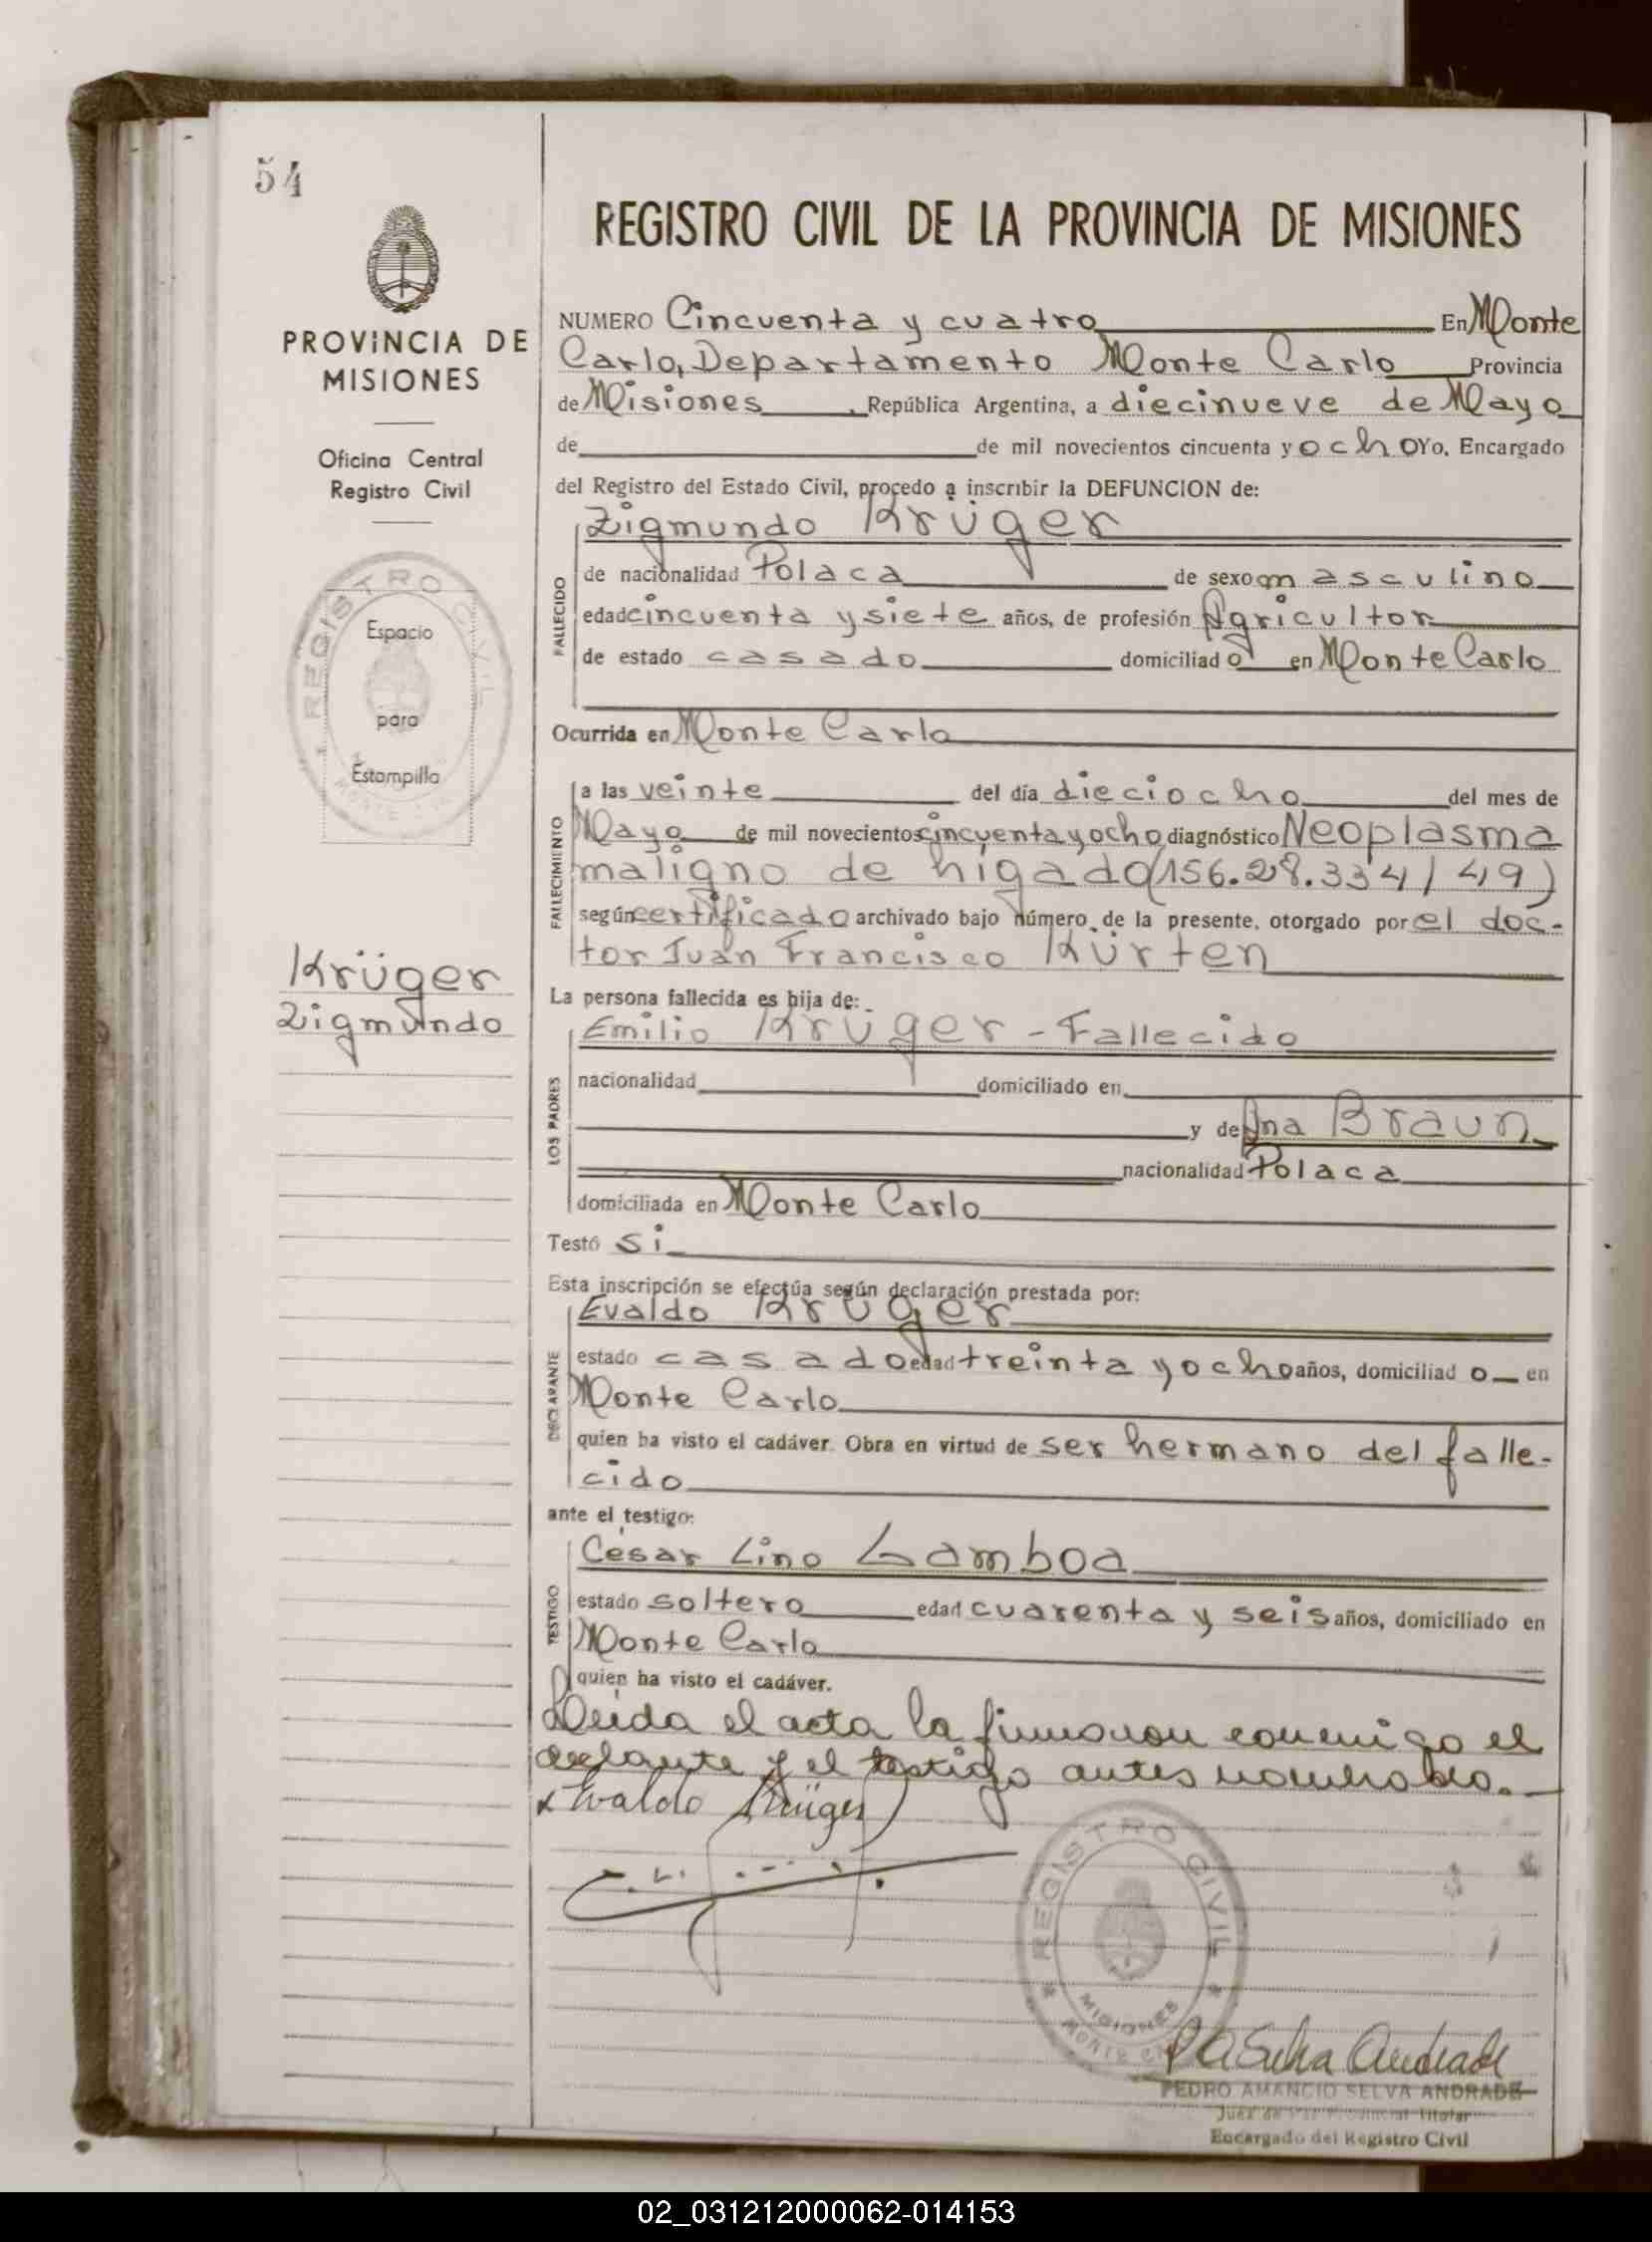 54
PROVINCIA DE
MISIONES
Oficina Central
Registro Civil
REGISTRO CIVIL
Espacio
para
Estampilla
Krüger
Zigmundo
REGISTRO CIVIL DE LA PROVINCIA DE MISIONES
NUMERO Cincuenta y cuatro En Monte
Carlo, Departamento Monte Carlo Provincia
de Misiones, República Argentina, a diecinueve de Mayo
de de mil novecientos cincuenta y ocho Yo, Encargado
del Registro del Estado Civil, procedo a inscribir la DEFUNCION de:
Zigmundo Krüger
FALLECIDO
de nacionalidad Polaca de sexo masculino
edad cincuenta y siete años, de profesión Agricultor
de estado casado domiciliado en Monte Carlo
Ocurrida en Monte Carlo
FALLECIMIENTO
a las veinte del día dieciocho del mes de
Mayo de mil novecientos cincuenta y ocho diagnóstico Neoplasma
maligno de hígado (156.28.334/49)
según certificado archivado bajo número de la presente, otorgado por el doc-
tor Juan Francisco Kürten
La persona fallecida es hija de:
Emilio Krüger - Fallecido
LOS PADRES
nacionalidad domiciliado en
y de Ana Braun
nacionalidad Polaca
domiciliada en Monte Carlo
Testó si
Esta inscripción se efectúa según declaración prestada por:
Evaldo Krüger
DECLARANTE
estado casado edad treinta y ocho años, domiciliado en
Monte Carlo
quien ha visto el cadáver. Obra en virtud de ser hermano del falle-
cido
ante el testigo:
César Lino Gamboa
TESTIGO
estado soltero edad cuarenta y seis años, domiciliado en
Monte Carlo
quien ha visto el cadáver.
Leída el acta la firmaron conmigo el
declante y el testigo antes nombrado.
x Evaldo Krüger
REGISTRO CIVIL
MISIONES
PASelva Andrade
PEDRO AMANCIO SELVA ANDRADE
Juez de Paz Provincial Titular
Encargado del Registro Civil
02_031212000062-014153